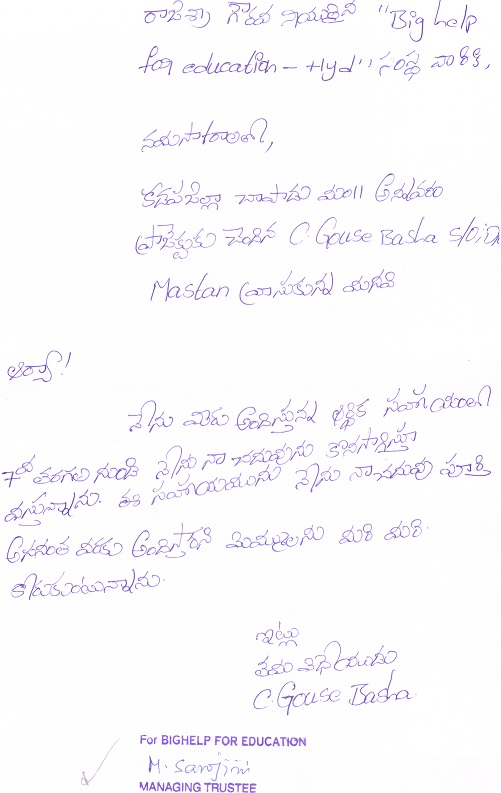 రాజశ్రీ గౌరవ నియుక్తులైన "Big help
for education - Hyd" సంస్థ వారికి,
నమస్కారాలతో,
కడపజిల్లా చాపాడు మం॥ అన్నవరం
ప్రాజెక్టుకు చెందిన C. Gouse Basha S/O;
Mastan వ్రాసుకున్న మనవి
ఆర్యా!
నేను మీరు అందిస్తున్న ఆర్థిక సహాయంతో
7వ తరగతి నుండి నేను నా చదువును కొనసాగిస్తూ
వస్తున్నాను. ఈ సహాయమును నేను నా చదువు పూర్తి
అయినంత వరకు అందిస్తారని మిమ్ములను మరి మరి
కోరుకుంటున్నాను.
ఇట్లు
తమ విధేయుడు
C. Gouse Basha.
For BIGHELP FOR EDUCATION
M. Sarojini
MANAGING TRUSTEE